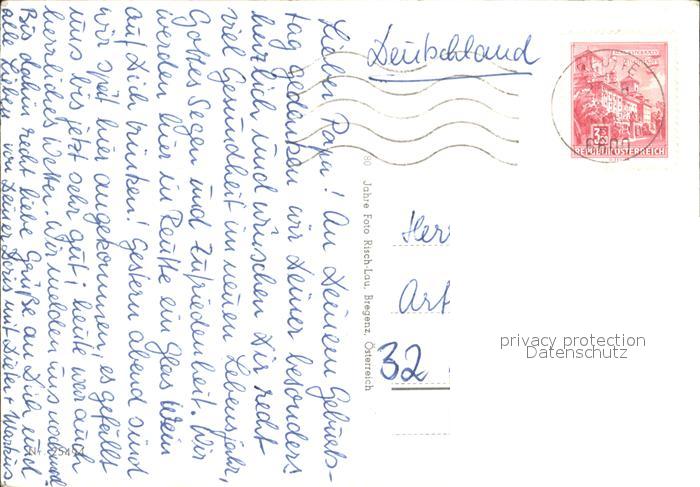 Lieber Papa! An Deinem Geburts-
tag gedenken wir Deiner besonders
herzlich und wünschen Dir recht
viel Gesundheit im neuen Lebensjahr,
Gottes Segen und Zufriedenheit. Wir
werden hier in Reutte ein Glas Wein
auf Dich trinken! Gestern abend sind
wir spät hier angekommen, es gefällt
uns bis jetzt sehr gut; heute war auch
herrliches Wetter. Wir melden uns nochmal.
Bis dahin recht liebe Grüße an Dich und
alle Lieben von Deiner Doris mit Dieter + Markus
Nr. 2549
80 Jahre Foto Risch-Lau, Bregenz, Österreich
Deutschland
REPUBLIK ÖSTERREICH
Herr
Art
32
privacy protection
Datenschutz